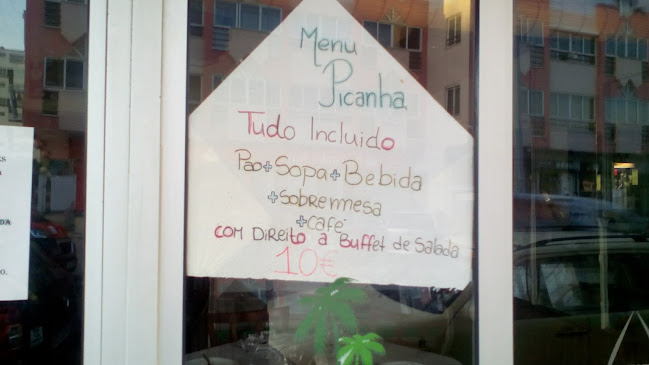 Menu
Picanha
Tudo Incluido
Pao+Sopa+Bebida
+Sobremesa
+Café
COM Direito à Buffet de Salada
10€